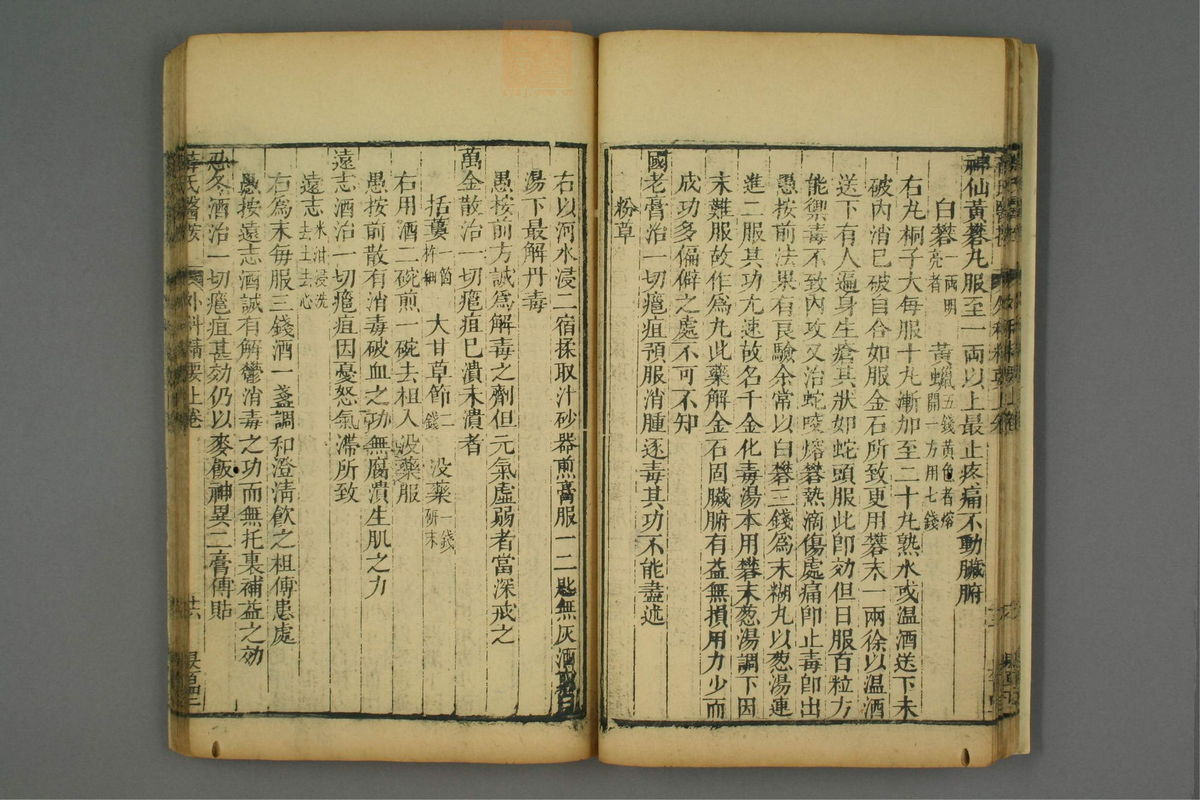 神仙黃礬丸服至一兩以上最止疼痛不動臟腑
白礬一兩明亮者　黃蠟五錢黃色者熔開一方用七錢
右丸桐子大每服十丸漸加至二十丸熟水或温酒送下未
破內消已破自合如服金石所致更用礬末一兩徐以温酒
送下有人遍身生瘡其狀如蛇頭服此卽効但日服百粒方
能禦毒不致內攻又治蛇咬熔礬熱滴傷處痛卽止毒卽出
愚按前法果有良驗余常以白礬三錢爲末糊丸以葱湯連
進二服其功尤速故名千金化毒湯本用礬末葱湯調下因
末難服故作爲丸此藥解金石固臟腑有益無損用力少而
成功多偏僻之處不可不知
國老膏治一切癰疽預服消腫逐毒其功不能盡述
粉草
右以河水浸二宿揉取汁砂器煎膏服一二匙無灰酒
湯下最解丹毒
愚按前方誠爲解毒之劑但元氣虛弱者當深戒之
萬金散治一切癰疽已潰未潰者
括蔞一箇杵細　大甘草節二錢　没藥一錢研末
右用酒二碗煎一碗去柤入没藥服
愚按前散有消毒破血之功無腐潰生肌之力
遠志酒治一切癰疽因憂怒氣滯所致
遠志米泔浸洗去土去心
右爲末每服三錢酒一盞調和澄清飲之柤傅患處
愚按遠志酒誠有解鬱消毒之功而無托裏補益之効
忍冬酒治一切癰疽甚効仍以麥飯神異二膏傅貼
薛氏醫按　外科精要上卷